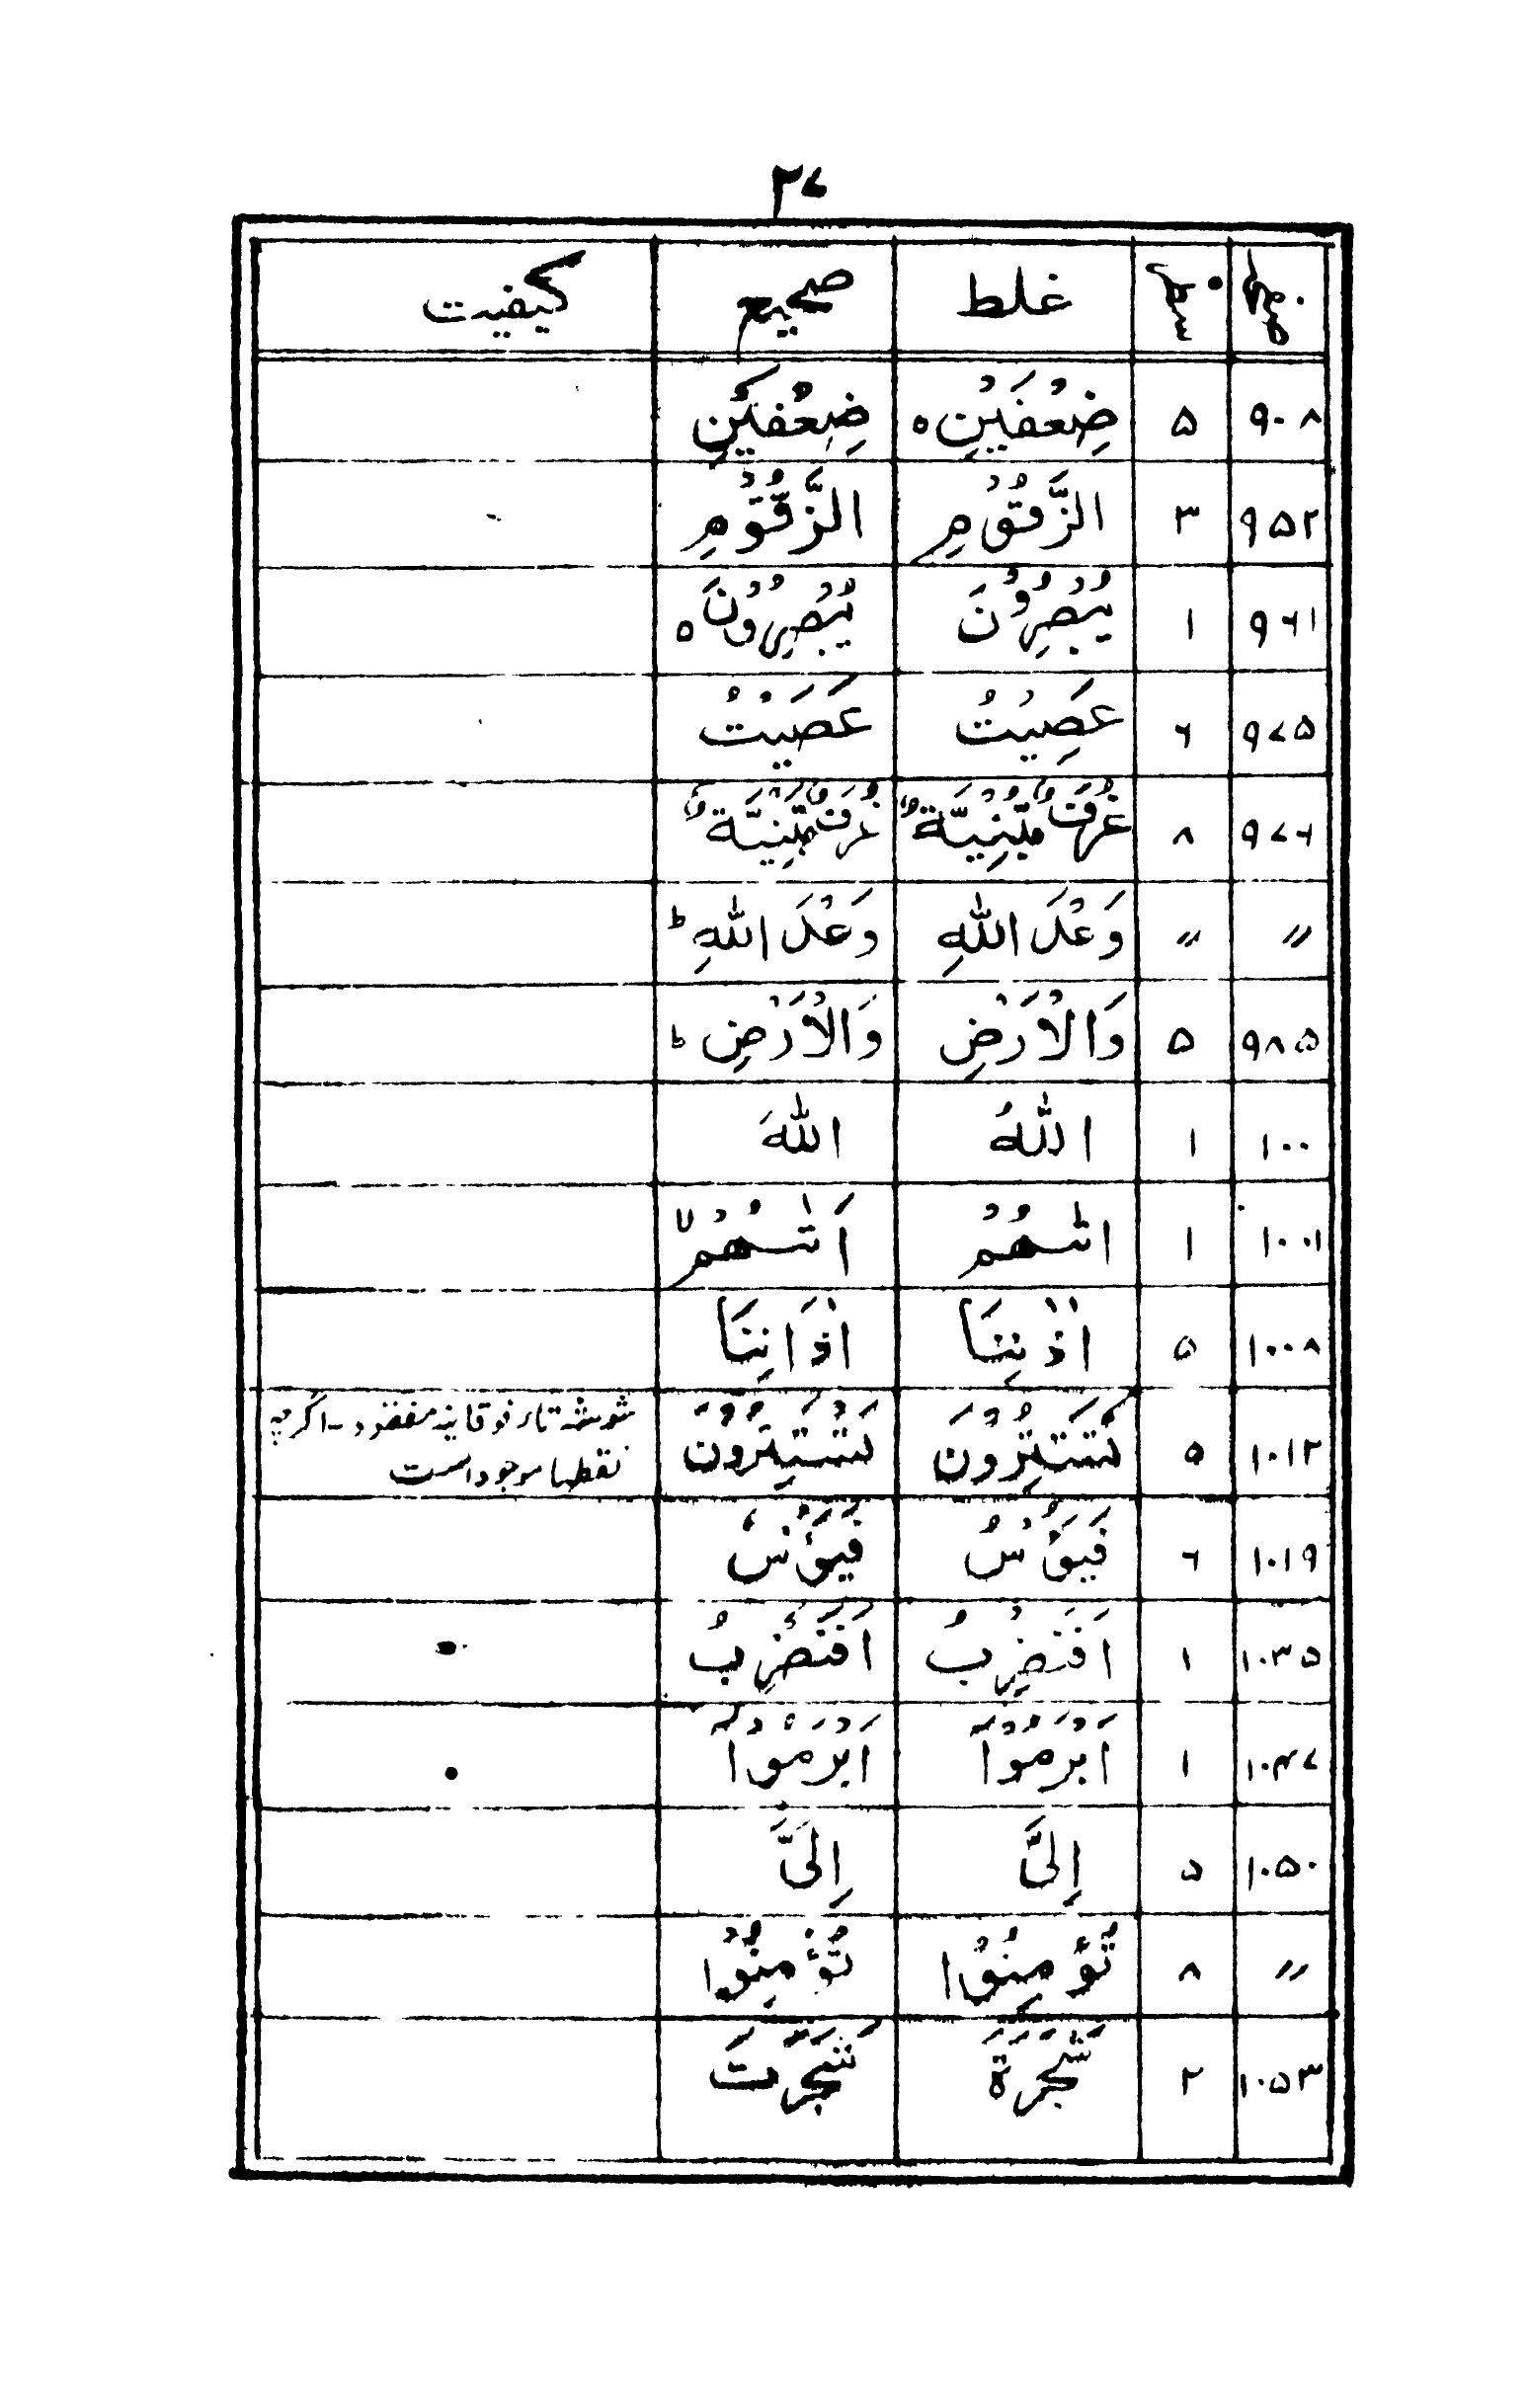 ۲۷
نمبر صفحہ نمبر سطر غلط صحیح کیفیت
۹۰۸ ۵ ضِعْفَيْنِ ہ ضِعْفَيْنِ
۹۵۲ ۳ الزَّقُوْمِ الزَّقُّوْمِ
۹۶۱ ۱ يُبْصِرُوْنَ يُبْصِرُوْنَ ہ
۹۷۵ ۶ عَصِيْتُ عَصَيْتُ
۹۷۶ ۸ غُرَفٌ مَّبْنِيَّةٌ غُرَفٌ مَّبْنِيَّةٌ
〃 〃 وَعْدَ اللّٰهِ وَعْدَ اللّٰهِ ط
۹۸۵ ۵ وَالْاَرْضِ وَالْاَرْضِ ط
۱۰۰ ۱ اللّٰهُ اللّٰهَ
۱۰۰۱ ۱ اتٰىهُمْ اَتٰىهُمْ لا
۱۰۰۸ ۵ اٰذٰنِنَا اٰذَانِنَا
۱۰۱۲ ۵ تَسْتَتِرُوْنَ تَسْتَتِرُوْنَ شوشہ تاء فوقانیہ مفقود ۔ اگرچہ
نقطہا موجود است
۱۰۱۹ ۶ فَيَؤُسٌ فَيَؤُسٌ
۱۰۳۵ ۱ اَفَنَضْرِبُ اَفَنَضْرِبُ
۱۰۴۷ ۱ اَبْرَمُوْا اَبْرَمُوْا
۱۰۵۰ ۵ اِلَىَّ اِلَىَّ
〃 ۸ تُؤْمِنُوْا تُؤْمِنُوْا
۱۰۵۳ ۲ شَجَرَةَ شَجَرَتَ